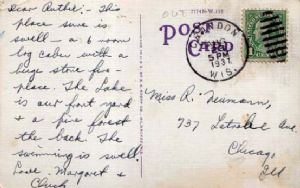 Dear Ruthie: - This
place sure is
swell - a 6 room
log cabin with a
huge stone fire-
place. The Lake
is our front yard
& a pine forest
the back. The
swimming is swell.
Love, Margaret &
Chuck
OUT
POST
CARD
CRANDON
5 PM
1937
WIS.
Miss R. Neumann,
737 Ave
Chicago,
Ill